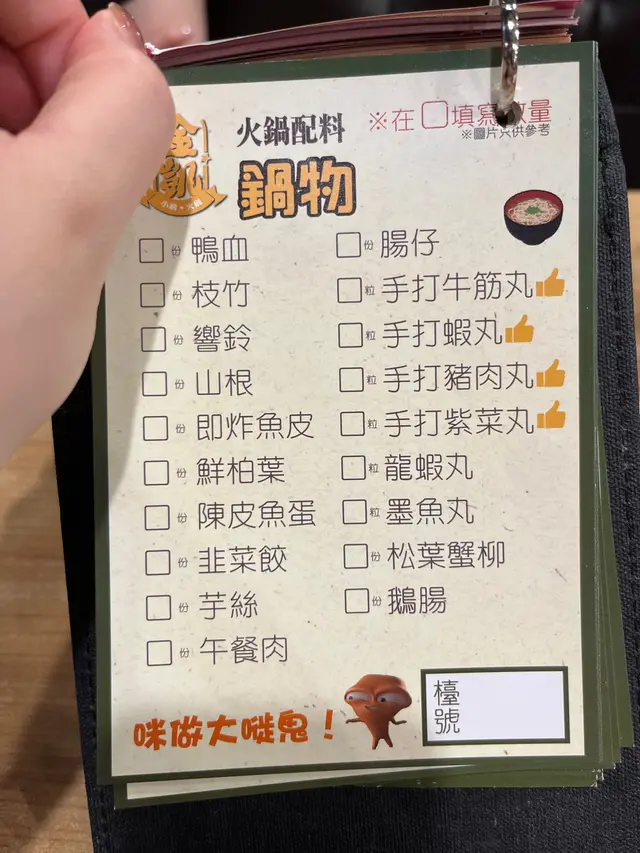 火鍋配料
※在□填寫數量
※圖片只供參考
鍋物
□份 鴨血
□份 枝竹
□份 響鈴
□份 山根
□份 即炸魚皮
□份 鮮柏葉
□份 陳皮魚蛋
□份 韭菜餃
□份 芋絲
□份 午餐肉
□份 腸仔
□粒 手打牛筋丸
□粒 手打蝦丸
□粒 手打豬肉丸
□粒 手打紫菜丸
□粒 龍蝦丸
□粒 墨魚丸
□份 松葉蟹柳
□份 鵝腸
咪做大嘥鬼！
檯號